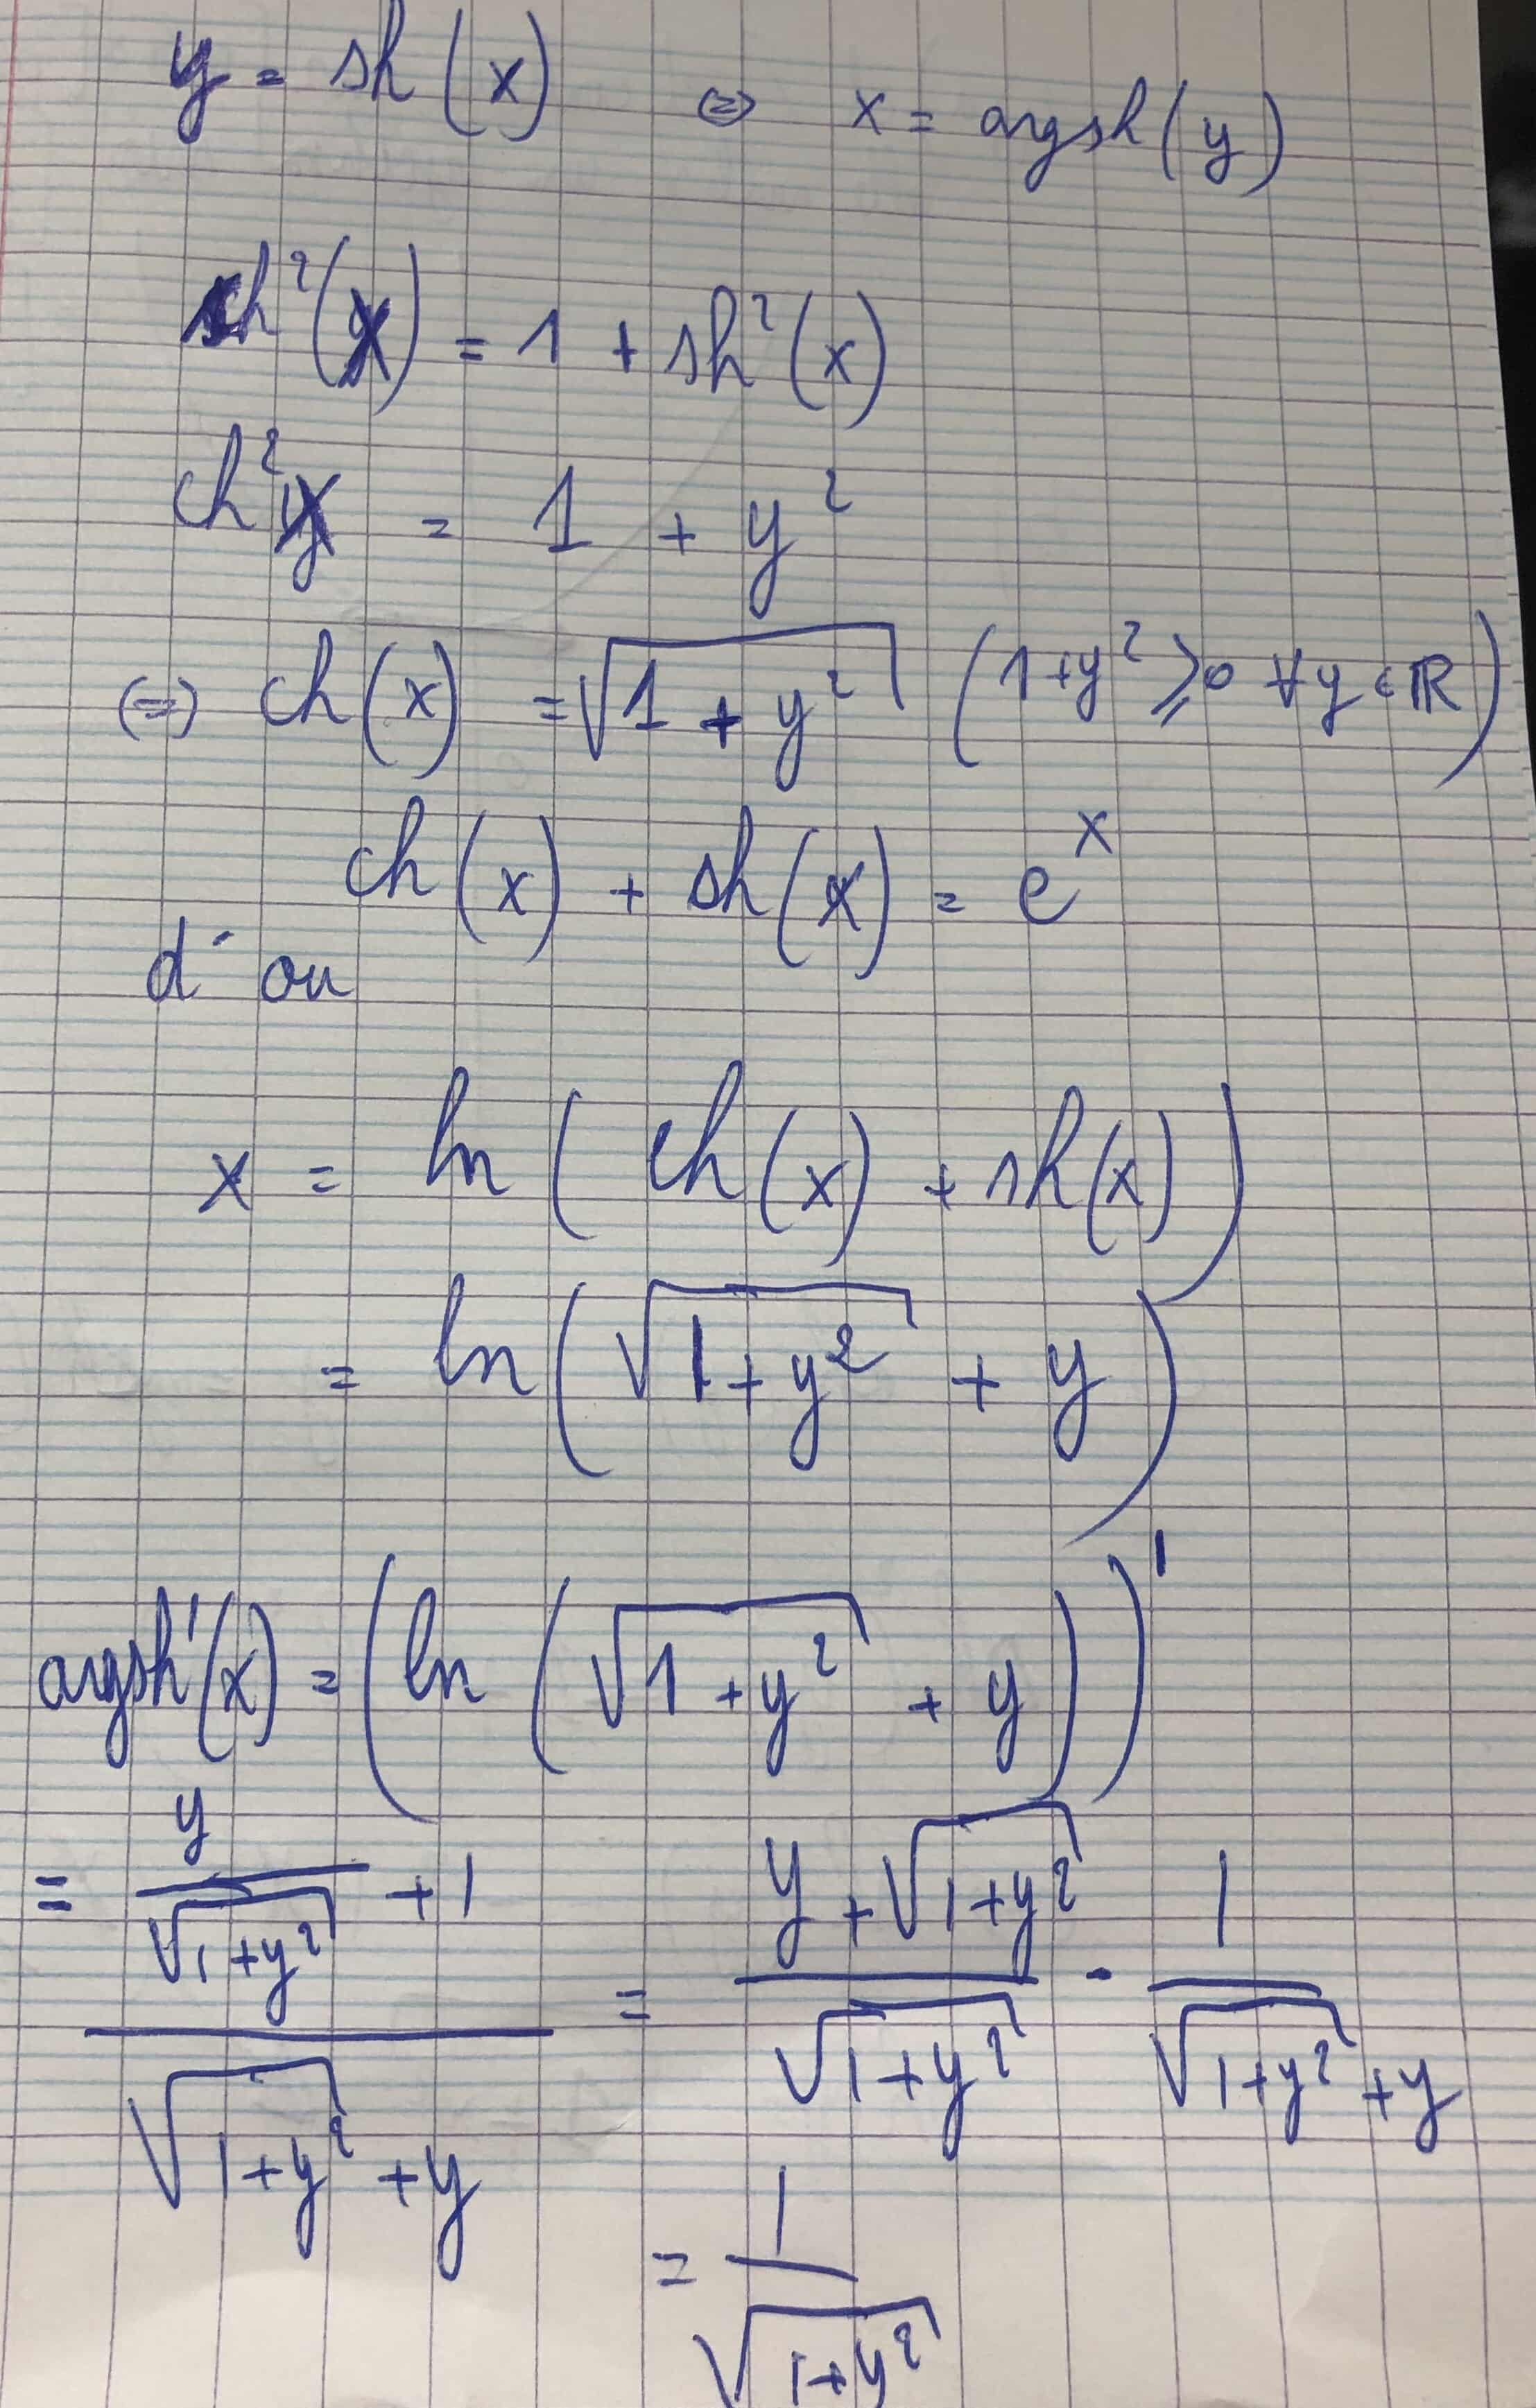 y = sh(x) ⇔ x = argsh(y)
ch²(x) = 1 + sh²(x)
ch²x = 1 + y²
(=) ch(x) = √(1 + y²) (1+y² ⩾ 0 ∀y ∈ ℝ)
ch(x) + sh(x) = e^x
d'ou
x = ln(ch(x) + sh(x))
= ln(√(1+y²) + y)
argsh'(x) = (ln(√(1+y²) + y))'
= (y/√(1+y²) + 1)/(√(1+y²) + y) = (y+√(1+y²))/√(1+y²) · 1/(√(1+y²) + y)
= 1/√(1+y²)